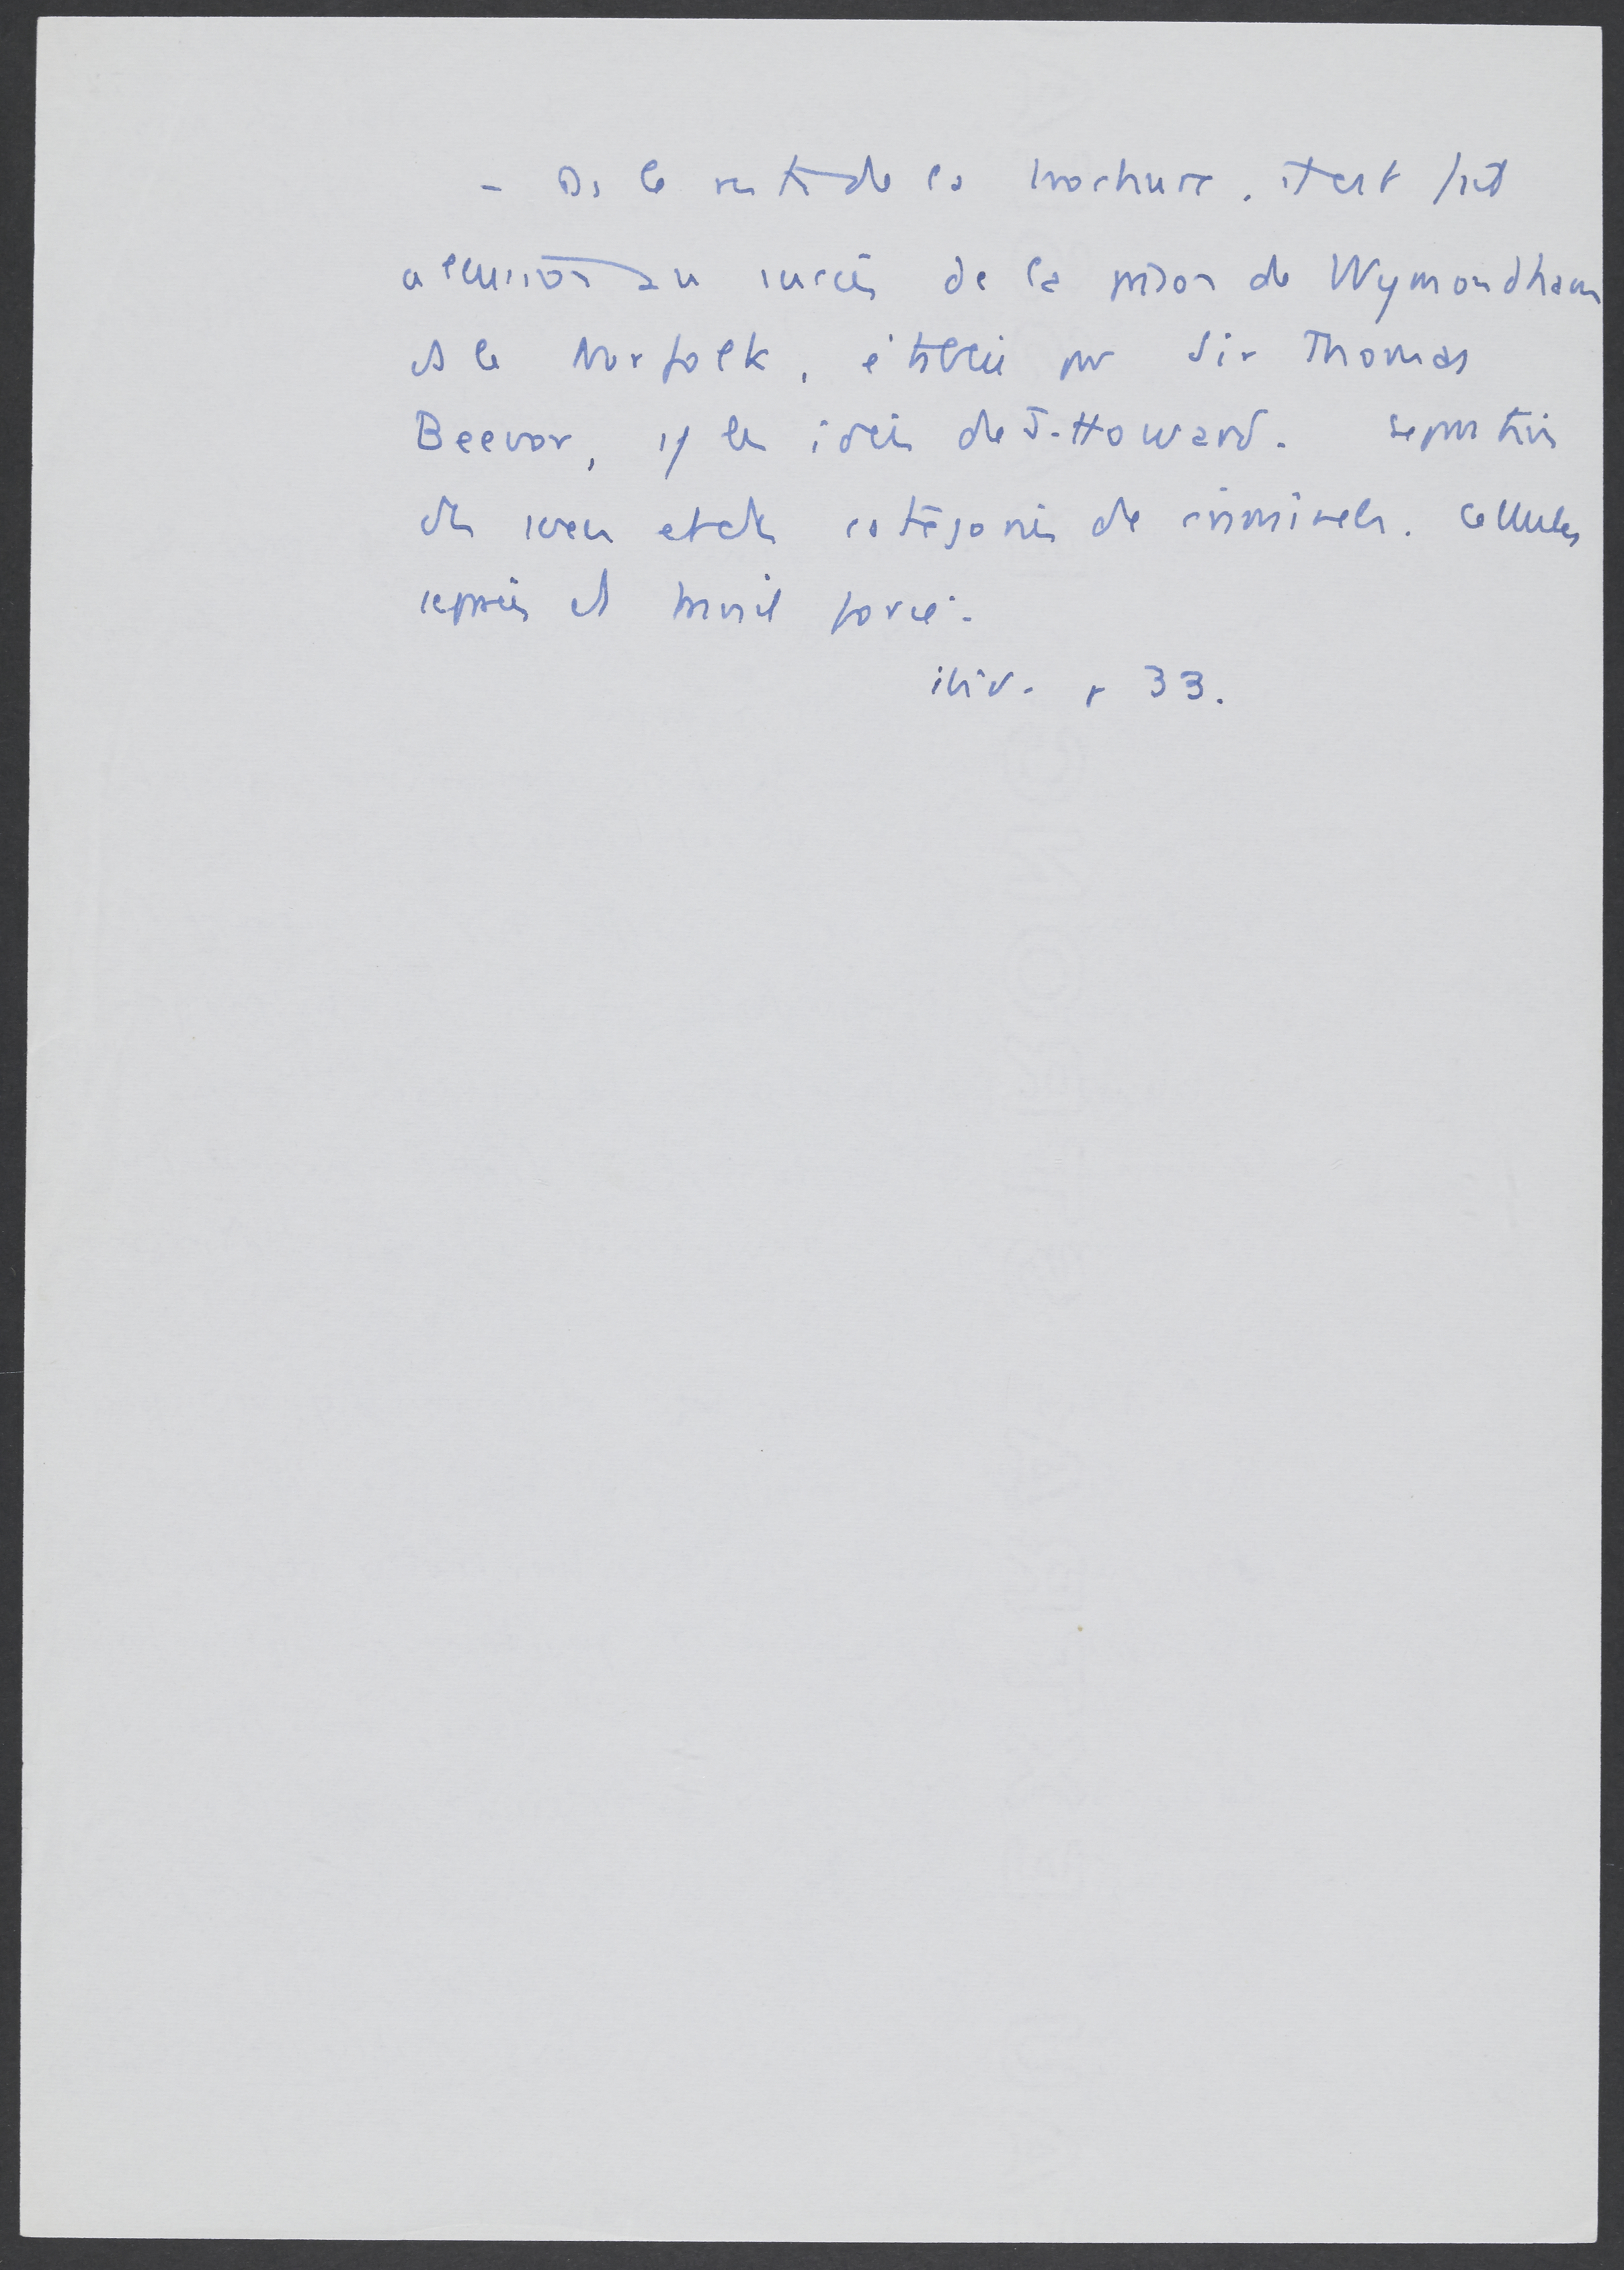 - Ds le reste de la brochure, il est fait
allusion au succès de la prison de Wymondham
ds le Norfolk, établie par Sir Thomas
Beevor, les idées de J. Howard. separation
des sexes et des catégories de criminels. Cellules
séparées et travail forcé.
ibid. p 33.